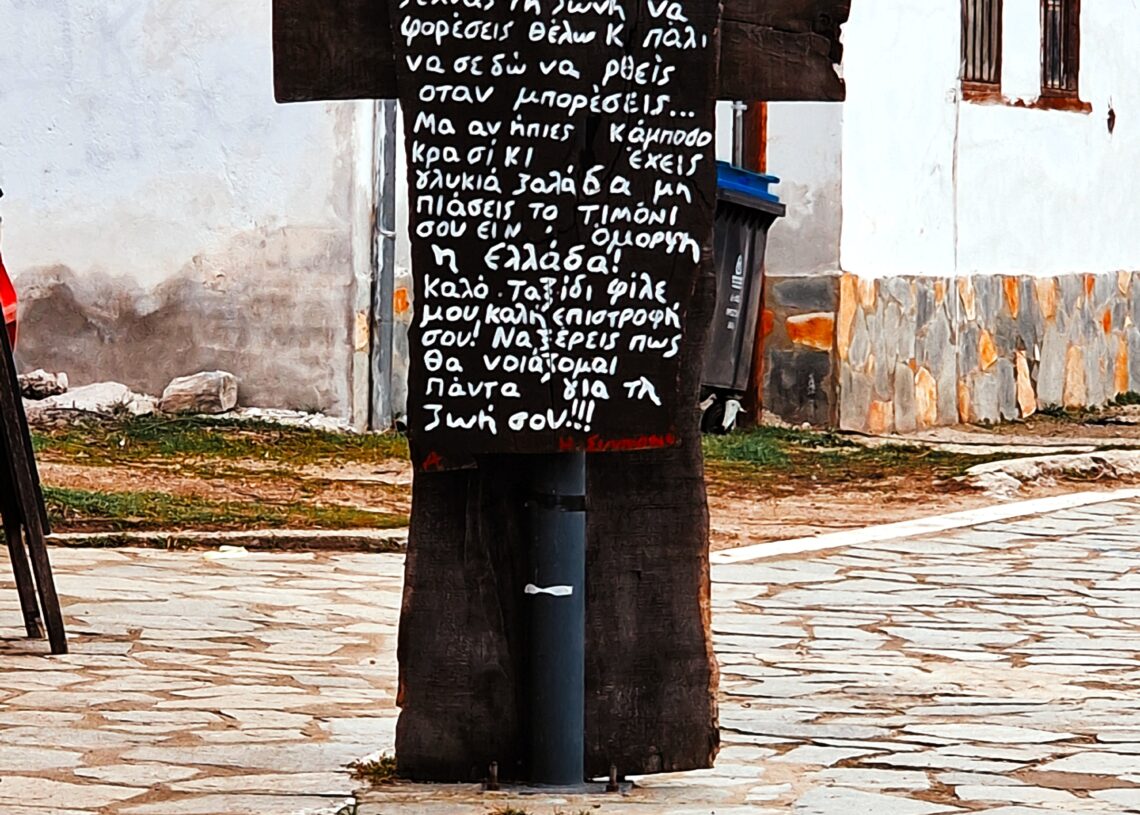 τη ζωνη να
φορέσεις θέλω κ πάλι
να σε δώ να ρθείς
οταν μπορέσεις...
Μα αν ήπιες κάμποσο
κρασί κι έχεις
γλυκιά ζαλάδα μη
πιάσεις το τιμόνι
σου ειν' όμορφη
η Ελλάδα!
Καλό ταξίδι φίλε
μου, καλή επιστροφή
σου! Να ξέρεις πως
θα νοιάζομαι
πάντα για τη
ζωή σου!!!